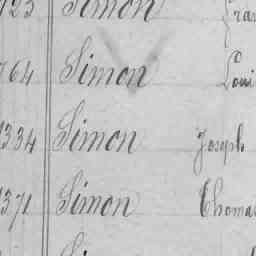 723 Simon Fra
764 Simon Loui
1334 Simon Joseph
1371 Simon Thomas